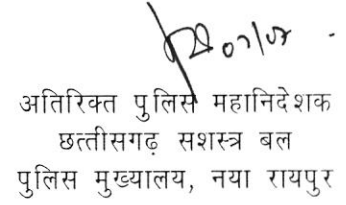 अतिरिक्त पुलिस महानिदेशक
छत्तीसगढ़ सशस्त्र बल
पुलिस मुख्यालय, नया रायपुर